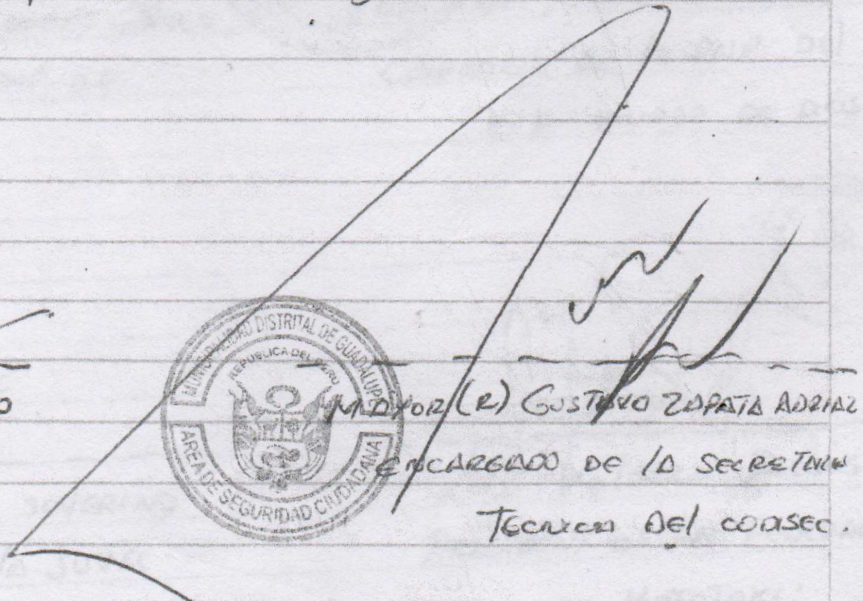 MUNICIPALIDAD DISTRITAL DE GUADALUPE
REPUBLICA DEL PERU
AREA DE SEGURIDAD CIUDADANA
MAYOR (R) GUSTAVO ZAPATA
ENCARGADO DE LA SECRETARIA
TECNICA DEL CODISEC.